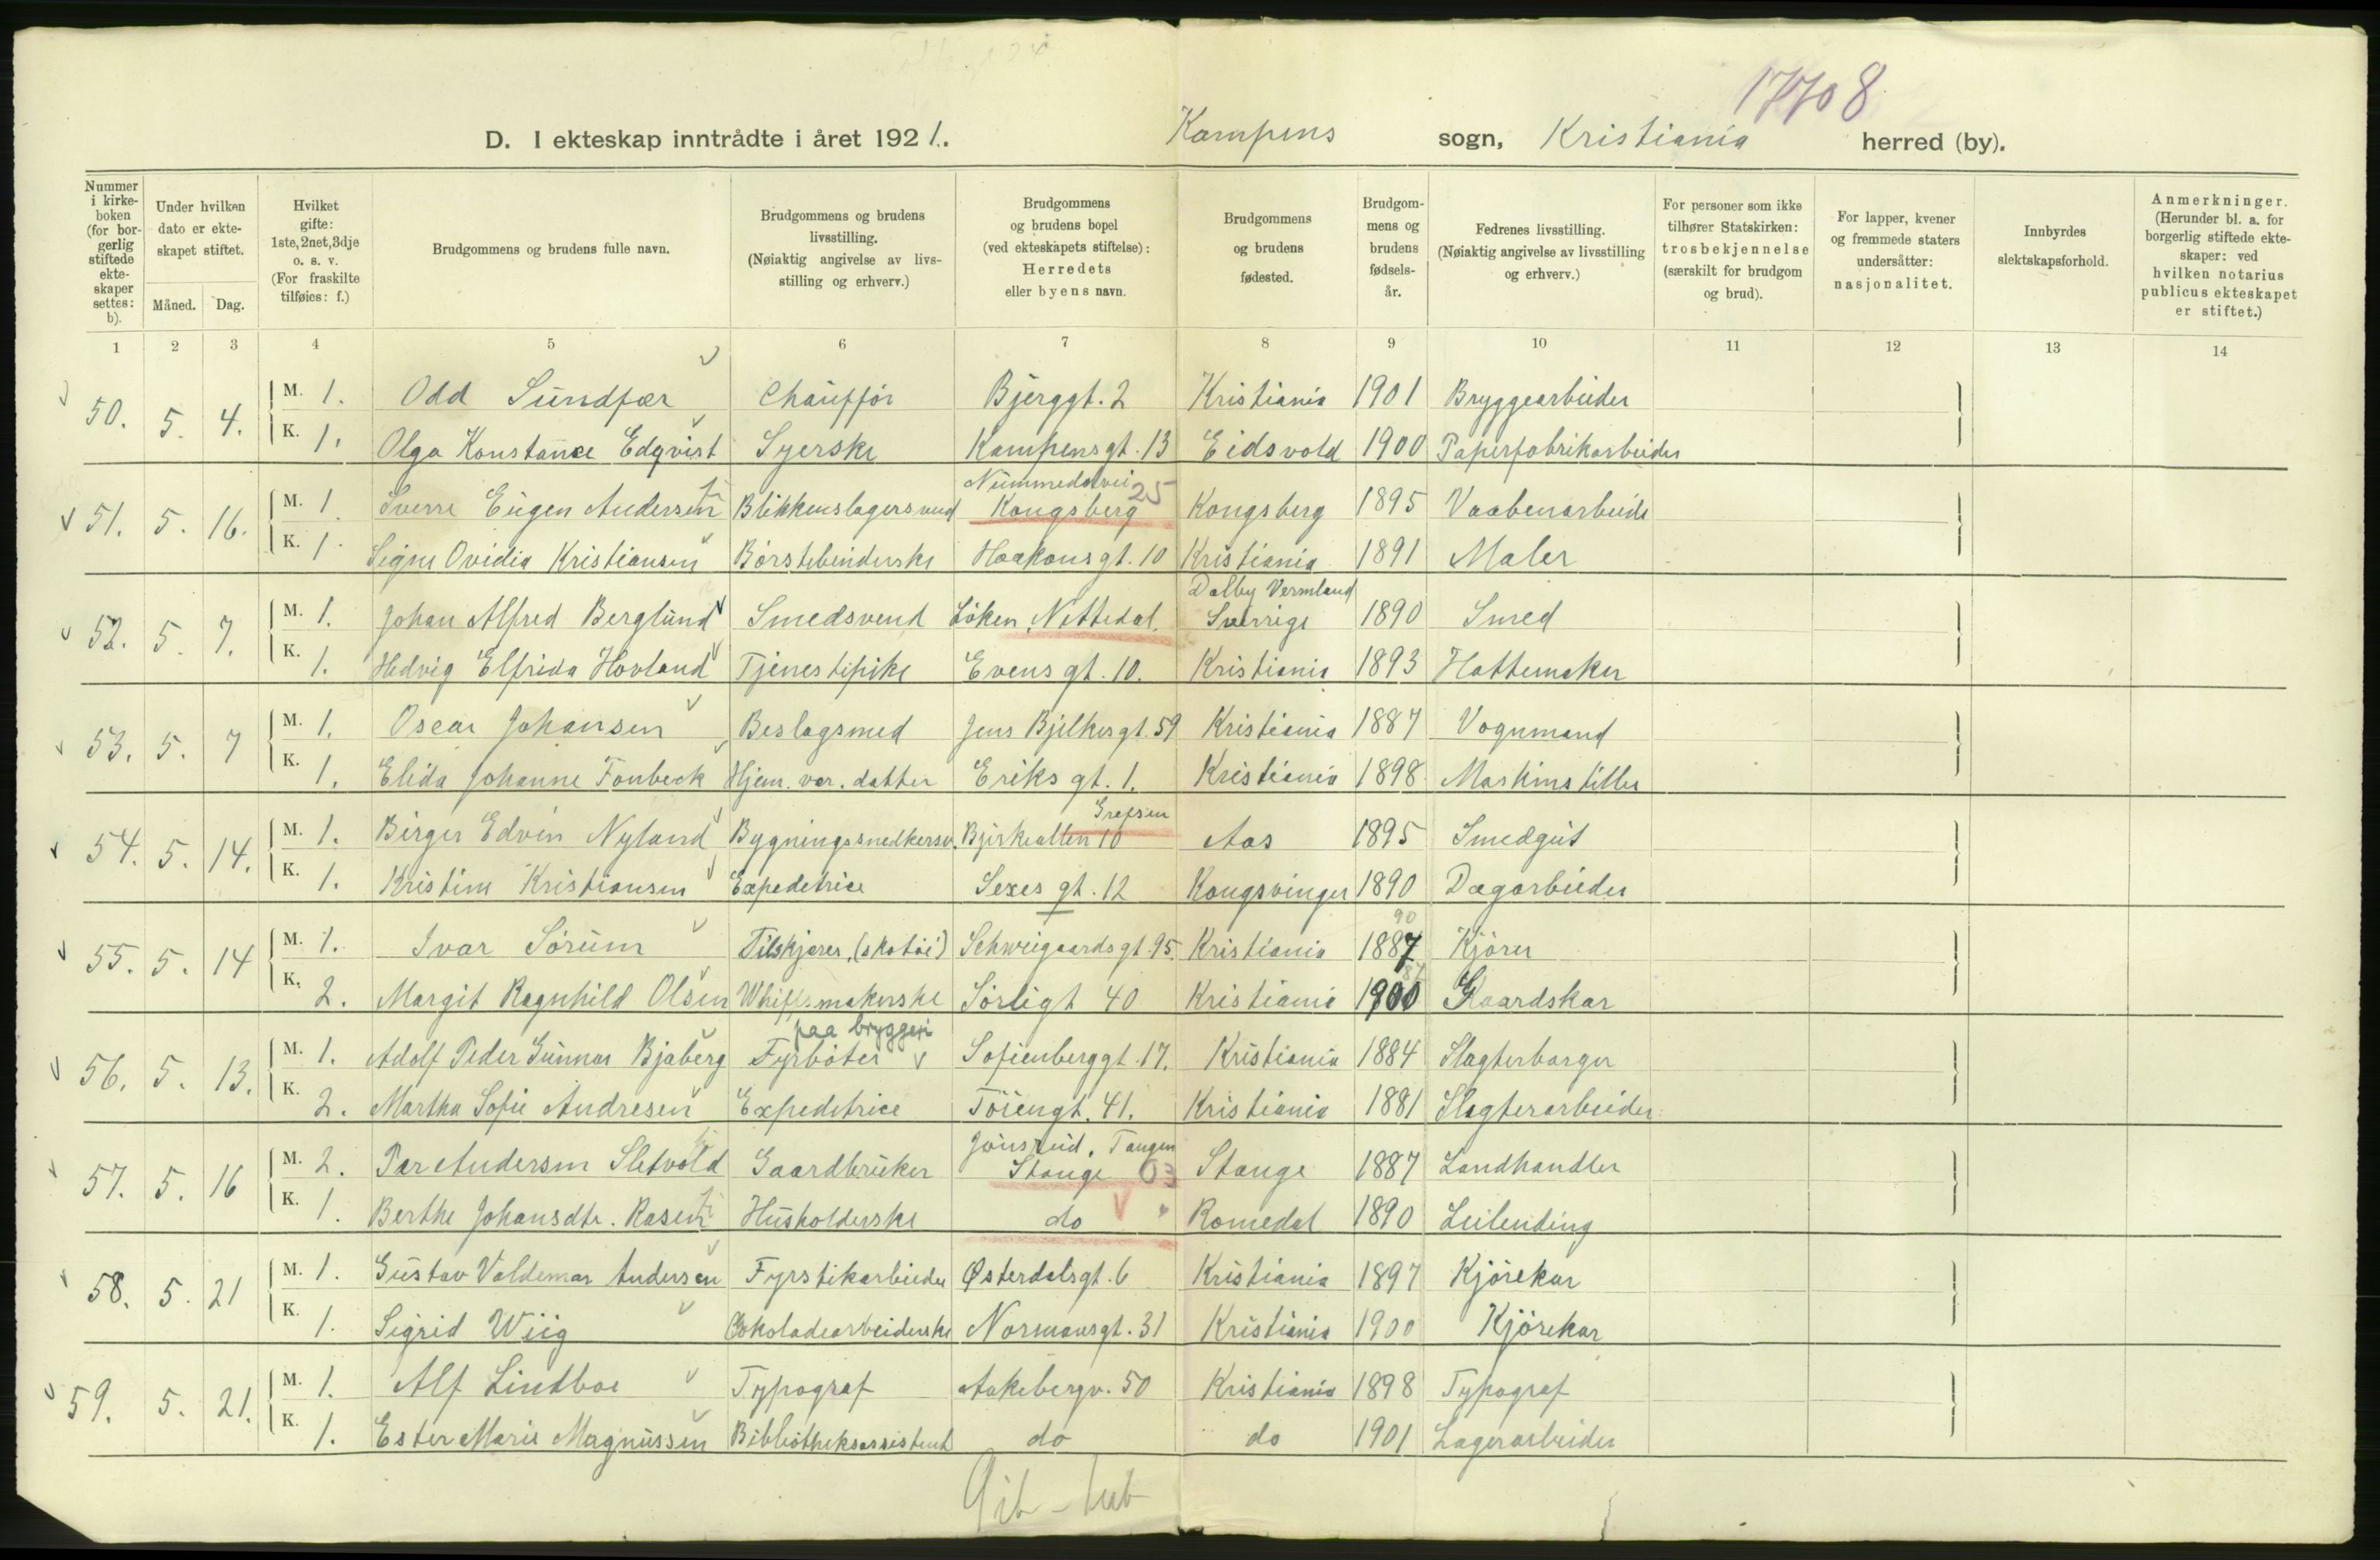 17708
D. I ekteskap inntrådte i året 1921. Kampens sogn, Kristiania herred (by).
Nummer i kirkeboken (for borgerlig stiftede ekteskaper settes: b).
Under hvilken dato er ekteskapet stiftet.
Måned. Dag.
Hvilket gifte: 1ste, 2net, 3dje o. s. v. (For fraskilte tilføies: f.)
Brudgommens og brudens fulle navn.
Brudgommens og brudens livsstilling. (Nøiaktig angivelse av livsstilling og erhverv.)
Brudgommens og brudens bopel (ved ekteskapets stiftelse): Herredets eller byens navn.
Brudgommens og brudens fødested.
Brudgommens og brudens fødselsår.
Fedrenes livsstilling. (Nøiaktig angivelse av livsstilling og erhverv.)
For personer som ikke tilhører Statskirken: trosbekjennelse (særskilt for brudgom og brud).
For lapper, kvener og fremmede staters undersåtter: nasjonalitet.
Innbyrdes slektskapsforhold.
Anmerkninger. (Herunder bl. a. for borgerlig stiftede ekteskaper: ved hvilken notarius publicus ekteskapet er stiftet.)
1 2 3 4 5 6 7 8 9 10 11 12 13 14
50. 5. 4. M. 1. Odd Sundfær Chauffør Bjerggt. 2 Kristiania 1901 Bryggearbeider
K. 1. Olga Konstance Edqvist Syerske Kampensgt. 13 Eidsvold 1900 Papirfabrikarbeider
Nummedalsvei 25
51. 5. 16. M. 1. Sverre Eugen Andersen Blikkenslagersvend Kongsberg Kongsberg 1895 Vaabenarbeide
K. 1. Signe Ovidia Kristiansen Børstebinderske Haakonsgt. 10 Kristiania 1891 Maler
Dalby Vermland
52. 5. 7. M. 1. Johan Alfred Berglund Smedsvend Løken, Nittedal. Sverrige 1890 Smed
K. 1. Hedvig Elfrida Hovland Tjenestepike Evens gt. 10. Kristiania 1893 Hattemaker
53. 5. 7 M. 1. Oscar Johansen Beslagsmed Jens Bjelkesgt. 59 Kristiania 1887 Vognmand
K. 1. Elida Johanne Fonbeck Hjem. vær. datter Eriks gt. 1. Kristiania 1898 Maskinstiller
Grefsen
54. 5. 14. M. 1. Birger Edvin Nyland Bygningssnedkersv. Bjerkealleen 10 Aas 1895 Smedgut
K. 1. Kristine Kristiansen Expeditrice Sexes gt. 12 Kongsvinger 1890 Dagarbeider
90
55. 5. 14 M. 1. Ivar Sørum Tilskjærer, (skotøi) Schweigaardsgt. 95. Kristiania 1887 Kjører
K. 2. Margit Ragnhild Olsen Whiffsmakerske Sørligt 40 Kristiania 1900 Gaardskar
paa bryggeri
56. 5. 13. M. 1. Adolf Peder Gunnar Bjaberg Fyrbøter Sofienberggt. 17. Kristiania 1884 Slagterborger
K. 2. Martha Sofie Andresen Expeditrice Tøiengt. 41. Kristiania 1881 Slagterarbeider
Jønsrud, Tangen
57. 5. 16 M. 2. Per Andersen Sletvold Gaardbruker Stange 03 Stange 1887 Landhandler
K. 1. Berthe Johansdtr. Rasen Husholderske do Romedal 1890 Leilending
58. 5. 21 M. 1. Gustav Valdemar Andersen Fyrstikarbeider Østerdalsgt. 6 Kristiania 1897 Kjørekar
K. 1. Sigrid Wiig Chokoladearbeiderske Normansgt. 31 Kristiania 1900 Kjørekar
59. 5. 21. M. 1. Alf Lindboe Typograf Aakebergv. 50 Kristiania 1898 Typograf
K. 1. Ester Marie Magnussen Bibliotheksassistent do do 1901 Lagerarbeider